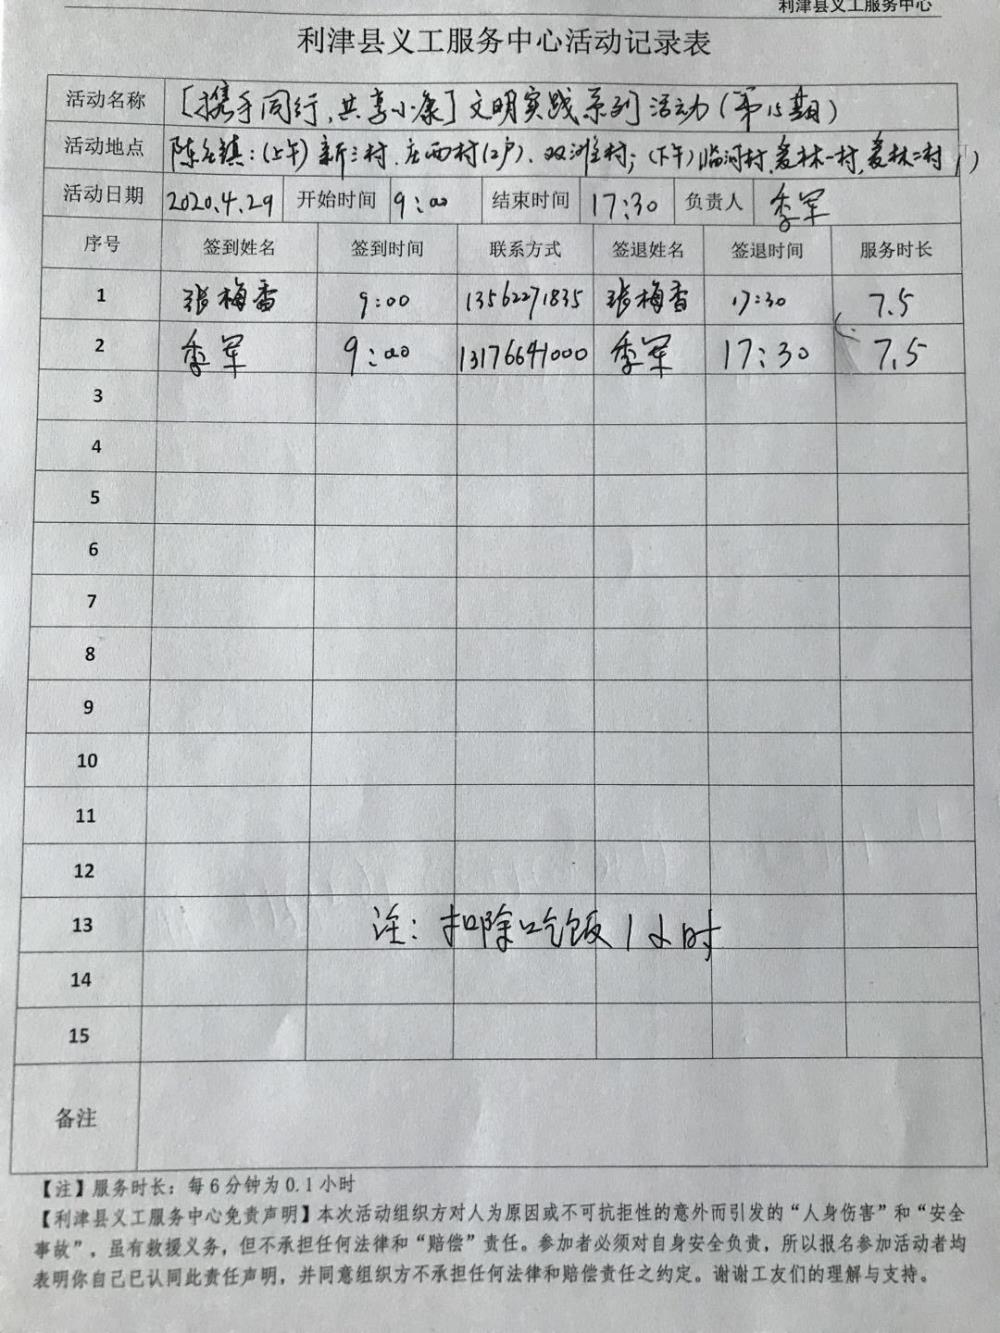 利津县义工服务中心
利津县义工服务中心活动记录表
活动名称 [携手同行,共享小康]文明实践系列活动(第15期)
活动地点 陈庄镇:(上午)新三村、庄西村(2户)、双滩村;(下午)临河村、爱林一村、爱林二村
活动日期 2020.4.29 开始时间 9:00 结束时间 17:30 负责人 季军
序号 签到姓名 签到时间 联系方式 签退姓名 签退时间 服务时长
1 张梅香 9:00 13562271835 张梅香 17:30 7.5
2 季军 9:00 13176641000 季军 17:30 7.5
3
4
5
6
7
8
9
10
11
12
13 注:扣除吃饭1小时
14
15
备注
【注】服务时长:每6分钟为0.1小时
【利津县义工服务中心免责声明】本次活动组织方对人为原因或不可抗拒性的意外而引发的“人身伤害”和“安全
事故”,虽有救援义务,但不承担任何法律和“赔偿”责任。参加者必须对自身安全负责,所以报名参加活动者均
表明你自己已认同此责任声明,并同意组织方不承担任何法律和赔偿责任之约定。谢谢工友们的理解与支持。